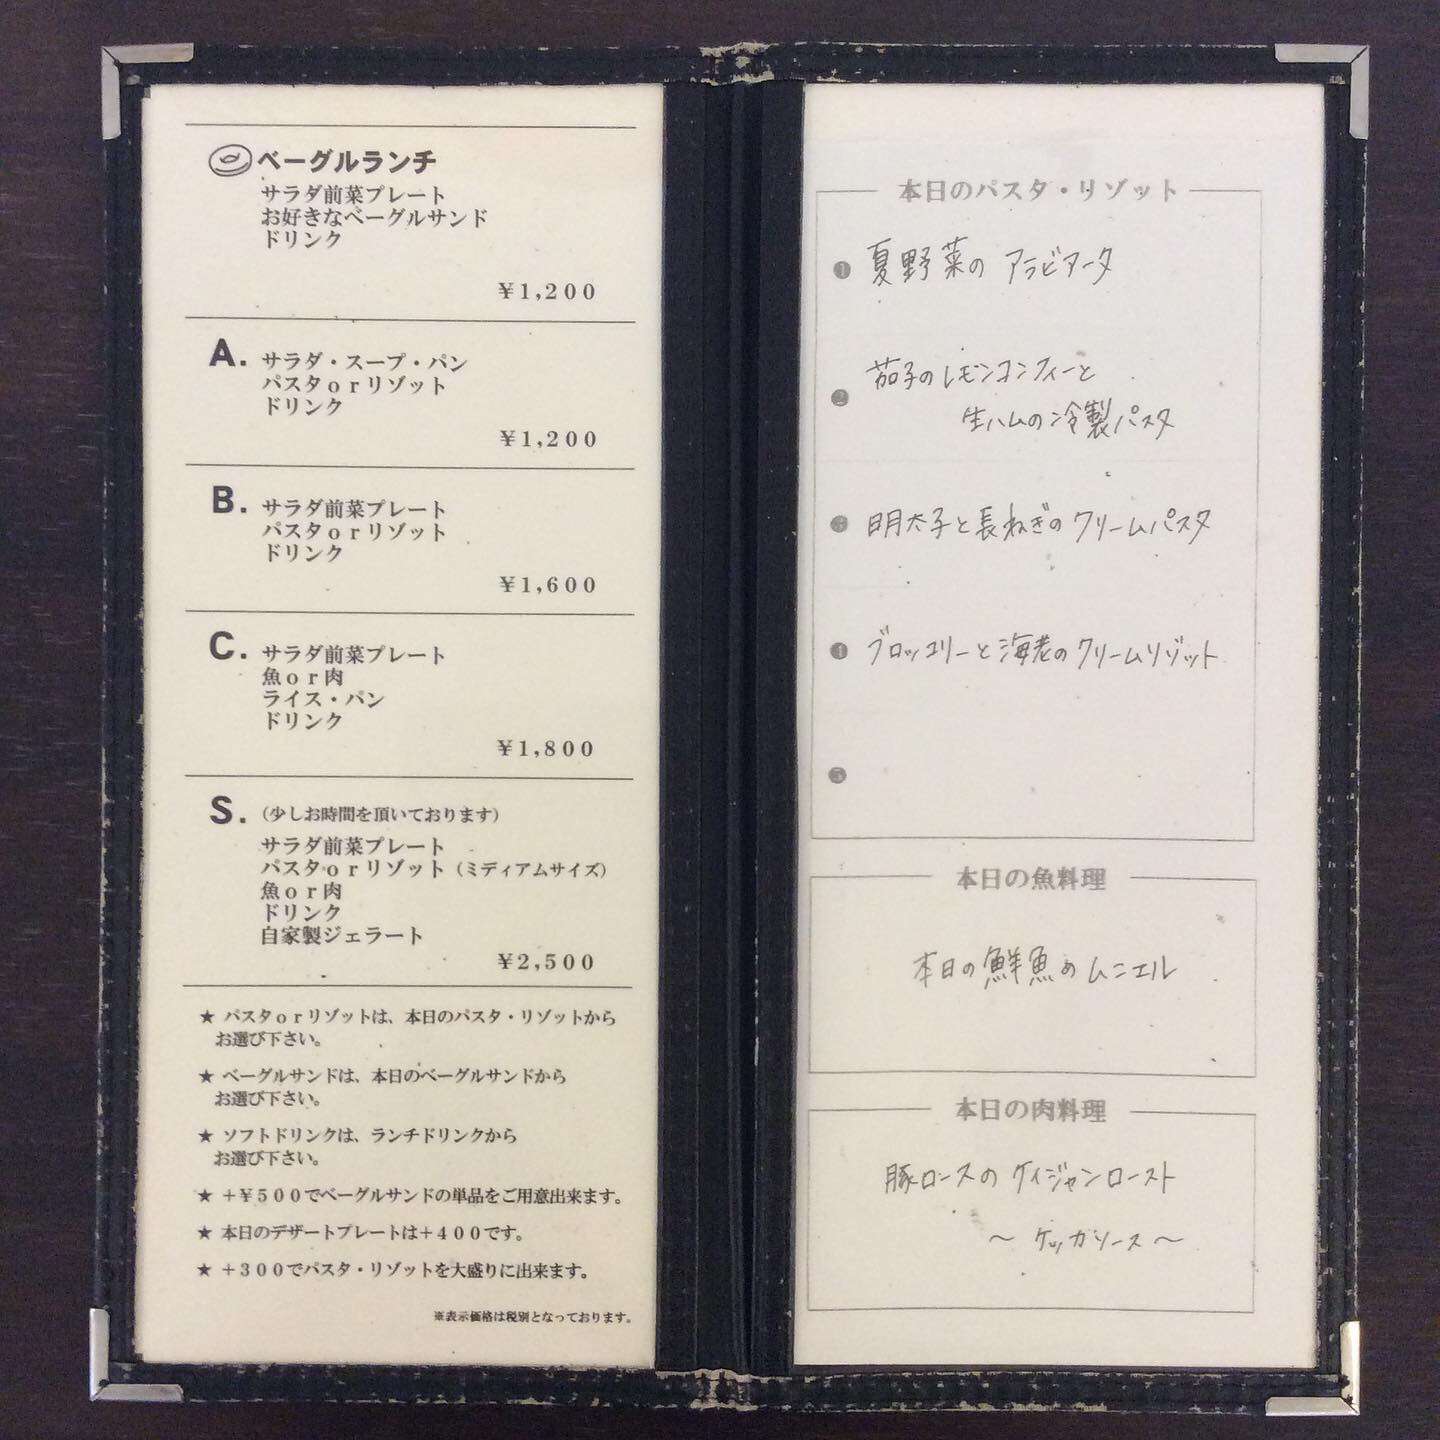 ベーグルランチ
サラダ前菜プレート
お好きなベーグルサンド
ドリンク
¥1,200
A. サラダ・スープ・パン
パスタorリゾット
ドリンク
¥1,200
B. サラダ前菜プレート
パスタorリゾット
ドリンク
¥1,600
C. サラダ前菜プレート
魚or肉
ライス・パン
ドリンク
¥1,800
S. (少しお時間を頂いております)
サラダ前菜プレート
パスタorリゾット(ミディアムサイズ)
魚or肉
ドリンク
自家製ジェラート
¥2,500
★ パスタorリゾットは、本日のパスタ・リゾットから
お選び下さい。
★ ベーグルサンドは、本日のベーグルサンドから
お選び下さい。
★ ソフトドリンクは、ランチドリンクから
お選び下さい。
★ +¥500でベーグルサンドの単品をご用意出来ます。
★ 本日のデザートプレートは+400です。
★ +300でパスタ・リゾットを大盛りに出来ます。
※表示価格は税別となっております。
本日のパスタ・リゾット
❶ 夏野菜の アラビアータ
❷ 茄子のレモンコンフィーと
生ハムの冷製パスタ
❸ 明太子と長ねぎのクリームパスタ
❹ ブロッコリーと海老のクリームリゾット
❺
本日の魚料理
本日の鮮魚のムニエル
本日の肉料理
豚ロースのケイジャンロースト
～ ケッカソース ～